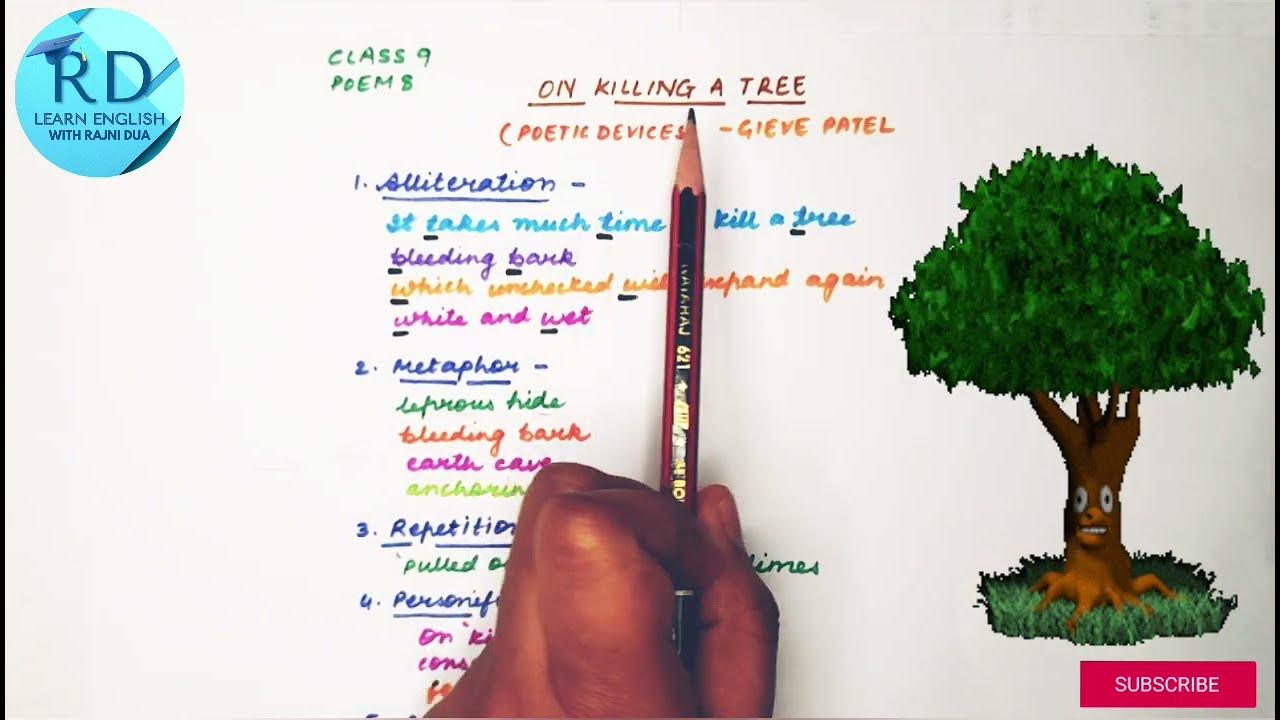 RD
LEARN ENGLISH
WITH RAJNI DUA
CLASS 9
POEM 8
ON KILLING A TREE
(POETIC DEVICES - GIEVE PATEL
1. Alliteration -
It takes much time kill a tree
bleeding bark
which unchecked will expand again
white and wet
2. Metaphor -
leprous hide
bleeding bark
earth cave
3. Repetition
'pulled times
4.
On
NATARAJ 621
SUBSCRIBE